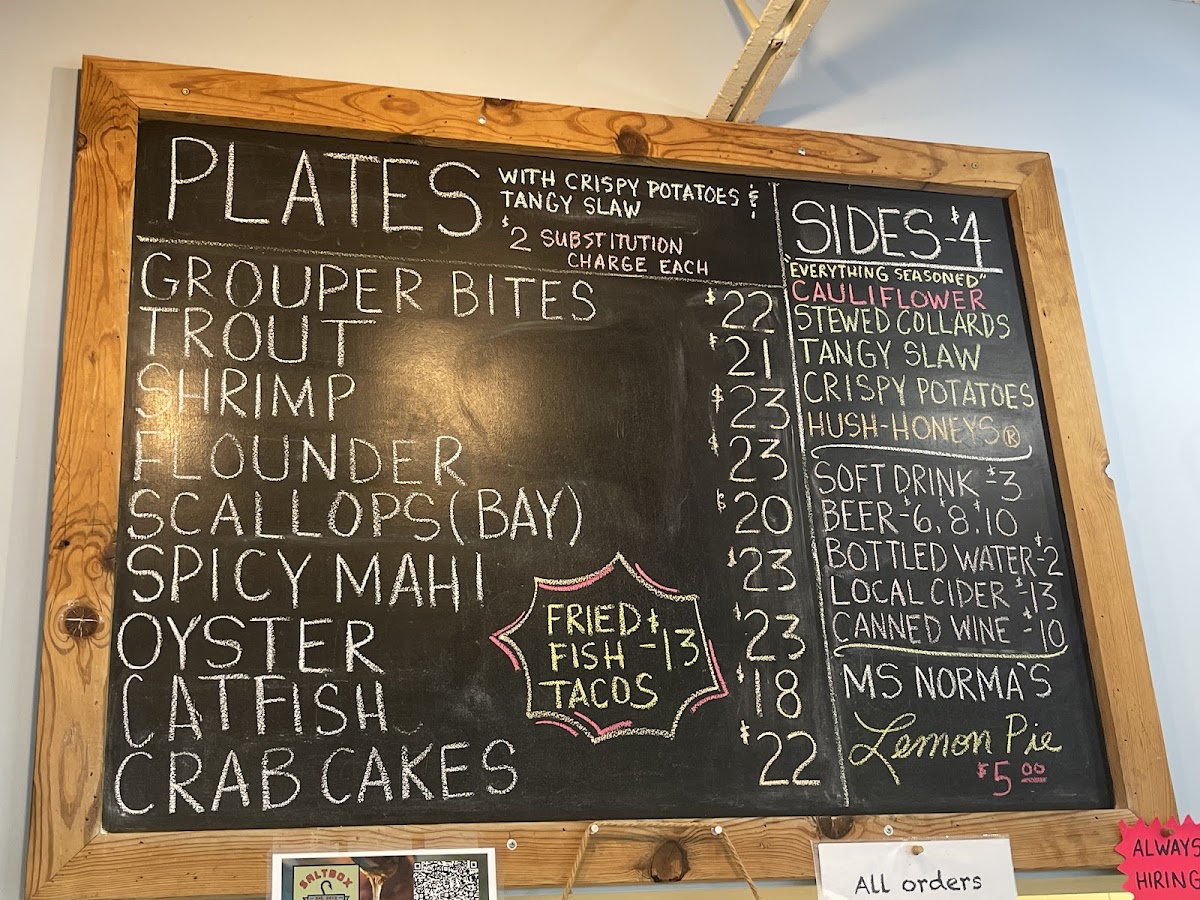 PLATES WITH CRISPY POTATOES &
TANGY SLAW
$2 SUBSTITUTION
CHARGE EACH
GROUPER BITES $22
TROUT $21
SHRIMP $23
FLOUNDER $23
SCALLOPS (BAY) $20
SPICY MAHI $23
OYSTER $23
CATFISH $18
CRAB CAKES $22
FRIED
FISH -$13
TACOS
SIDES-$4
"EVERYTHING SEASONED"
CAULIFLOWER
STEWED COLLARDS
TANGY SLAW
CRISPY POTATOES
HUSH-HONEYS®
SOFT DRINK -$3
BEER-$6, $8, $10
BOTTLED WATER-$2
LOCAL CIDER -$13
CANNED WINE -$10
MS NORMA'S
Lemon Pie
$5 00
SALTBOX
All orders
ALWAYS
HIRING